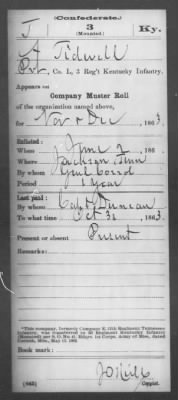 (Confederate.)
J 3 Ky.
(Mounted)
A Tidwell
Pvt, Co. L, 3 Reg't Kentucky Infantry.
Appears on
Company Muster Roll
of the organization named above,
for Nov & Dec, 1863.
Enlisted:
When June 2, 186 .
Where Jackson Tenn
By whom
Period 1 year
Last paid:
By whom Capt Duncan
To what time Oct 31, 1863.
Present or absent Present
Remarks:
*This company, formerly Company E, 12th Regiment Tennessee
Infantry, was transferred to 3d Regiment Kentucky Infantry
(Mounted) per S. O. No. 41, Hdqrs. 1st Corps, Army of Miss., dated
Corinth, Miss., May 10, 1862.
Book mark:
(642)
Copyist.